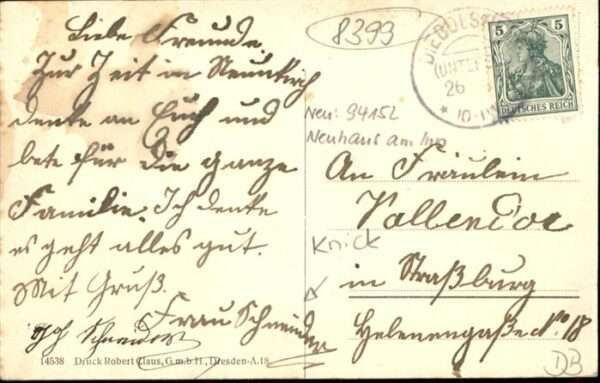 Liebe Freunde,
Zur Zeit in Neunkirch
denke an Euch und
bete für die ganze
Familie. Ich denke
es geht alles gut.
Mit Gruß.
Frau Schneider
14538 Druck Robert Claus, G.m.b.H., Dresden-A.18
8399
26
10-11
5 5
DEUTSCHES REICH
Neu: 94152
Neuhaus am Inn
An Fräulein
Knick
in Straßburg
Helenengaße No. 18
DB